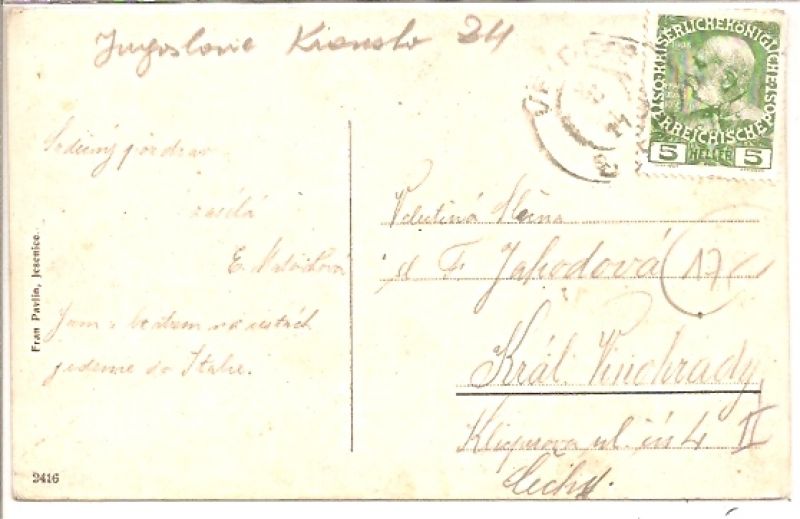 Jugoslavie Kransko 24
Srdečný pozdrav
zasílá
E.
Jsem s bratrem na cestách
jedeme do Italie.
Fran Pavlin, Jesenice.
2416
KAISERLICHE KÖNIGLICHE
ÖSTERREICHISCHE POST
1908
5 HELLER 5
Velectěná Slečna
sl F. Jahodová
17
Král. Vinohrady
Klicperova ul. čís 4 II
Čechy.